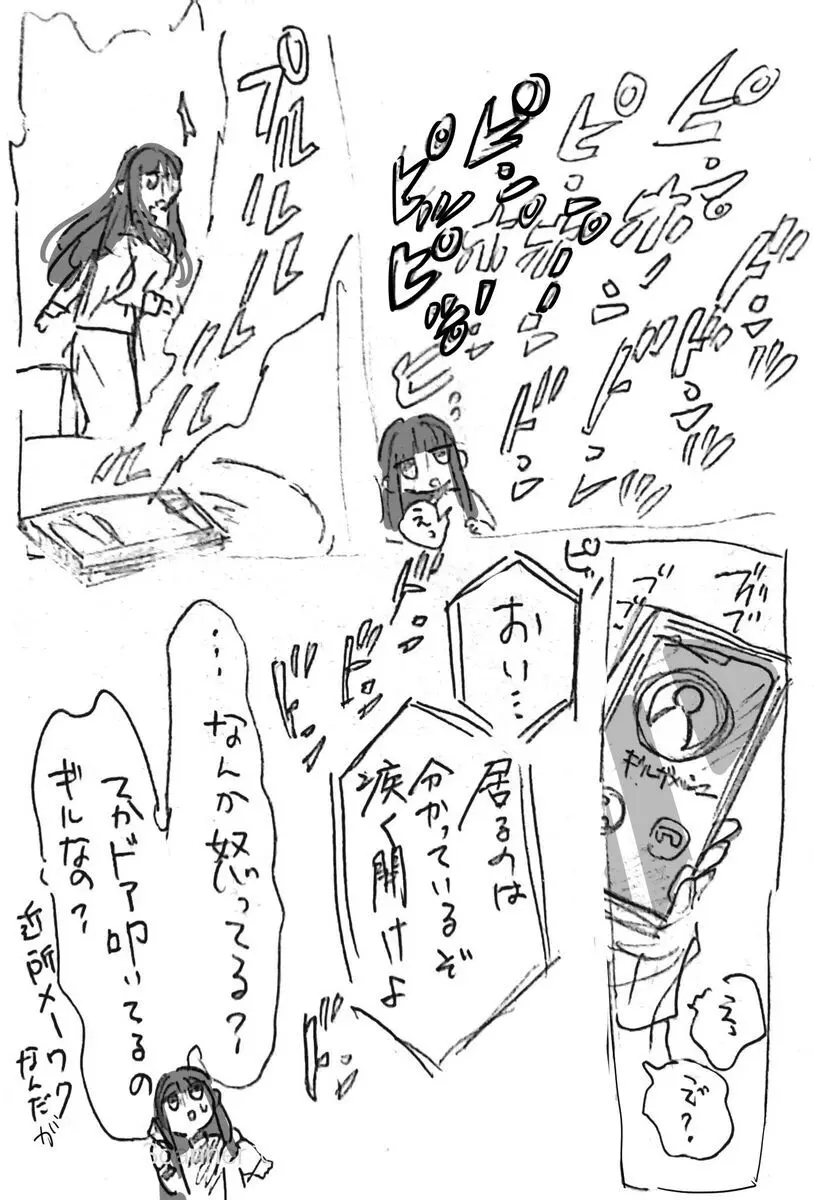 ピンポーン
ピンポーン
ピンポーン
ピッ
ピンポーン
ドンッ
ドンッ
ドンッ
ドンッ
ドンッ
えっ
プルルルルルルル
ブブブ
ブブ
ギルガメッシュ
えっ
で?
ピッ
おい…
居るのは
分かっているぞ
疾く開けよ
ドンッ
ドンッ
ドンッ
ドンッ
…なんか怒ってる?
てかドア叩いてるの
ギルなの?
近所メーワク
なんだが